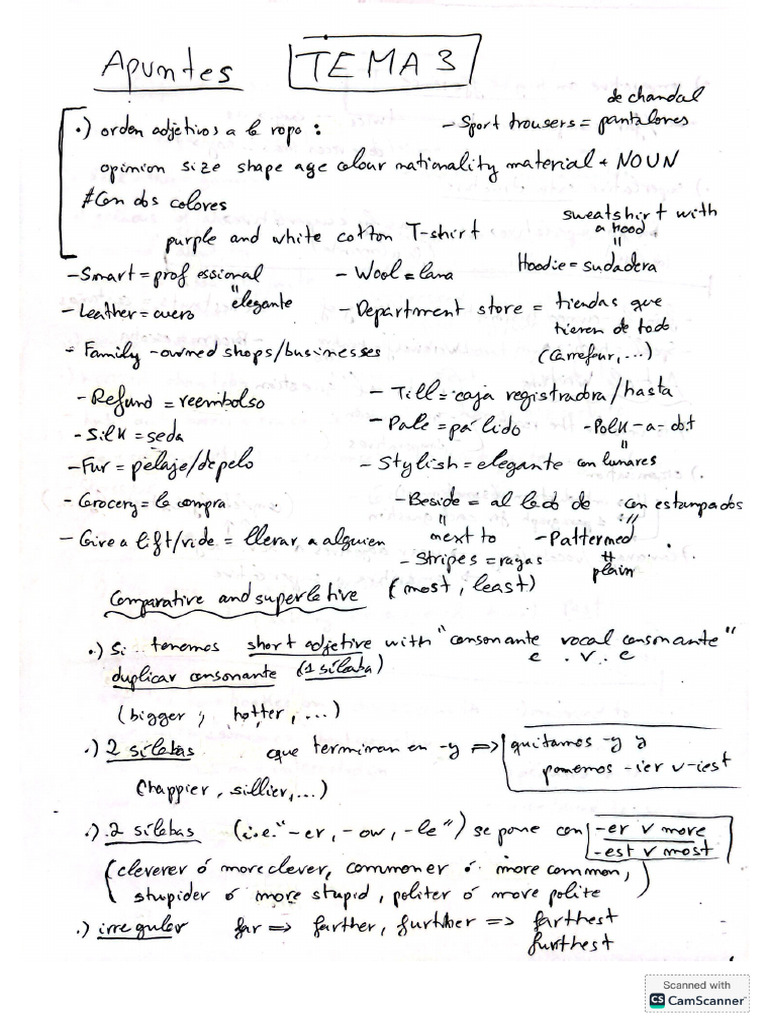 Apuntes TEMA 3
.) orden adjetivos a la ropa :
- Sport trousers = pantalones de chandal
opinion size shape age colour nationality material + NOUN
# Con dos colores
purple and white cotton T-shirt
sweatshirt with a hood
"
Hoodie = sudadera
- Smart = professional
"
elegante
- Wool = lana
- Leather = cuero
- Department store = tiendas que tienen de todo
(Carrefour, ...)
- Family-owned shops/businesses
- Refund = reembolso
- Till = caja registradora/hasta
- Silk = seda
- Pale = pálido
- Polk-a-dot
"
con lunares
- Fur = pelaje/de pelo
- Stylish = elegante
- Grocery = la compra
- Beside = al lado de
"
next to
con estampados
"
- Patterned
≠
plain
- Give a lift/ride = llevar, a alguien
- Stripes = rayas
Comparative and superlative (most, least)
.) Si tenemos short adjetive with "consonante vocal consonante"
c . v . c
duplicar consonante (1 sílaba)
(bigger, hotter, ...)
.) 2 sílabas que terminan en -y => quitamos -y y
ponemos -ier v -iest
(happier, sillier, ...)
.) 2 sílabas (i.e. "-er, -ow, -le") se pone con -er v more
-est v most
(cleverer ó more clever, commoner ó more common,
stupider ó more stupid, politer ó more polite)
.) irregular far => farther, further => farthest
furthest
Scanned with
CS CamScanner